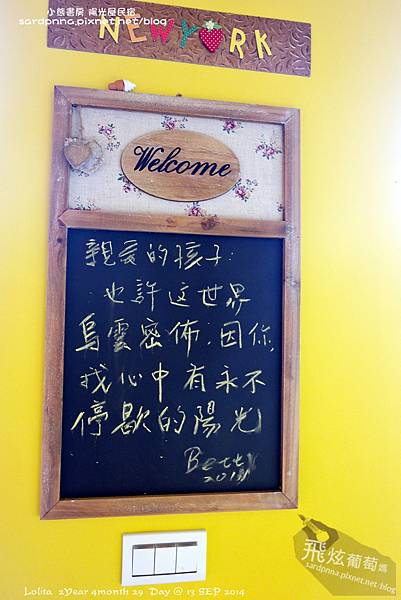 小熊書房 陽光屋民宿
sardonna.pixnet.net/blog
NEW YORK
Welcome
親愛的孩子:
也許这世界
烏雲密佈,因你,
我心中有永不
停歇的陽光
Betty
2014
飛炫葡萄媽
sardonna.pixnet.net/blog
Lolita 2Year 4month 29 Day @ 13 SEP 2014